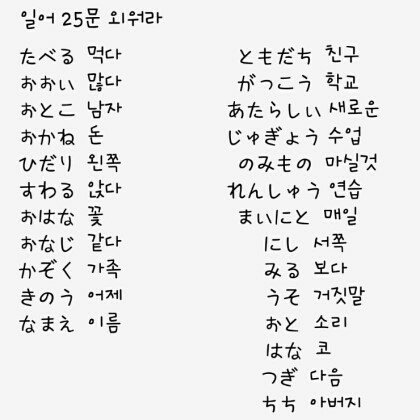 일어 25문 외워라
たべる 먹다
おおい 많다
おとこ 남자
おかね 돈
ひだり 왼쪽
すわる 앉다
おはな 꽃
おなじ 같다
かぞく 가족
きのう 어제
なまえ 이름
ともだち 친구
がっこう 학교
あたらしい 새로운
じゅぎょう 수업
のみもの 마실것
れんしゅう 연습
まいにと 매일
にし 서쪽
みる 보다
うそ 거짓말
おと 소리
はな 코
つぎ 다음
ちち 아버지